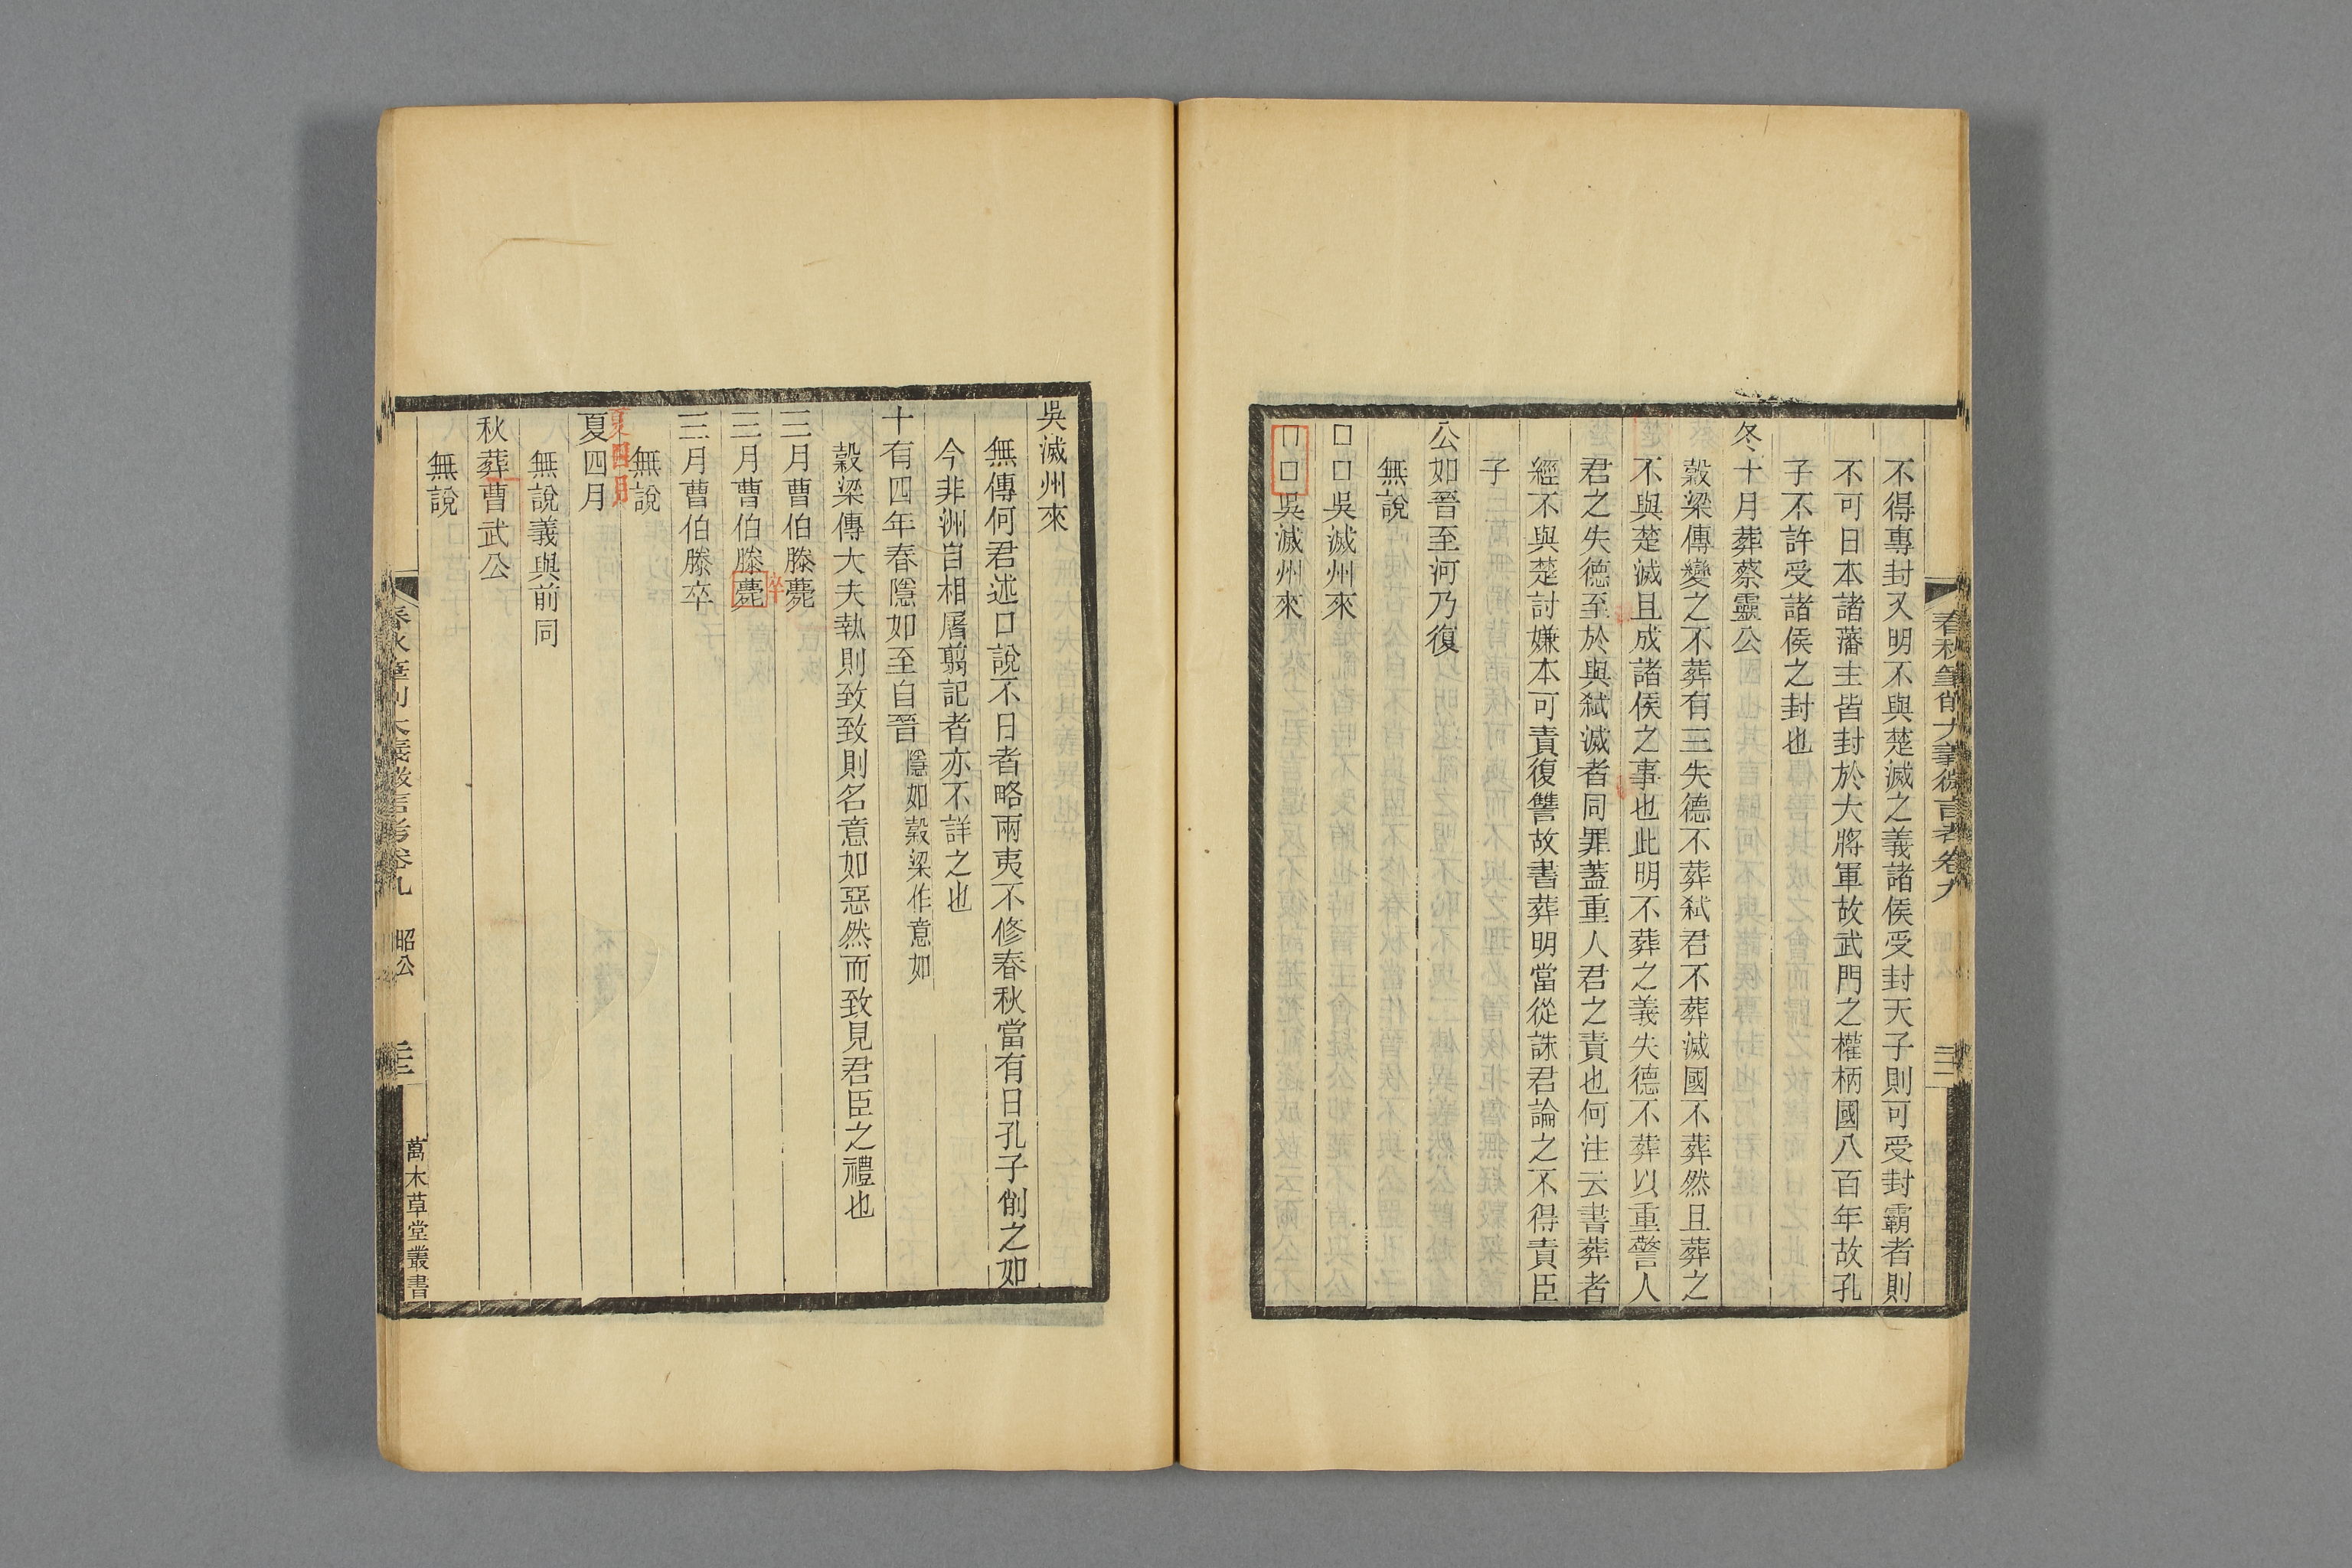 不得專封又明不與楚滅之義諸侯受封天子則可受封霸者則
不可日本諸藩主皆封於大將軍故武門之權柄國八百年故孔
子不許受諸侯之封也
冬十月葬蔡靈公
穀梁傳變之不葬有三失德不葬弒君不葬滅國不葬然且葬之
不與楚滅且成諸侯之事也此明不葬之義失德不葬以重警人
君之失德至於與弒滅者同罪蓋重人君之責也何注云書葬者
經不與楚討嫌本可責復讐故書葬明當從誅君論之不得責臣
子
公如晉至河乃復
無說
□□吳滅州來
□□吳滅州來
春秋筆削大義微言考卷九
吳滅州來
無傳何君述口說不日者略兩夷不修春秋當有日孔子削之如
今非洲自相屠翦記者亦不詳之也
十有四年春隱如至自晉 隱如穀梁作意如
穀梁傳大夫執則致致則名意如惡然而致見君臣之禮也
三月曹伯滕薨
三月曹伯滕薨
卒
三月曹伯滕卒
無說
夏四月
夏四月
無說義與前同
秋葬曹武公
無說
春秋筆削大義微言考卷九 昭公
萬木草堂叢書